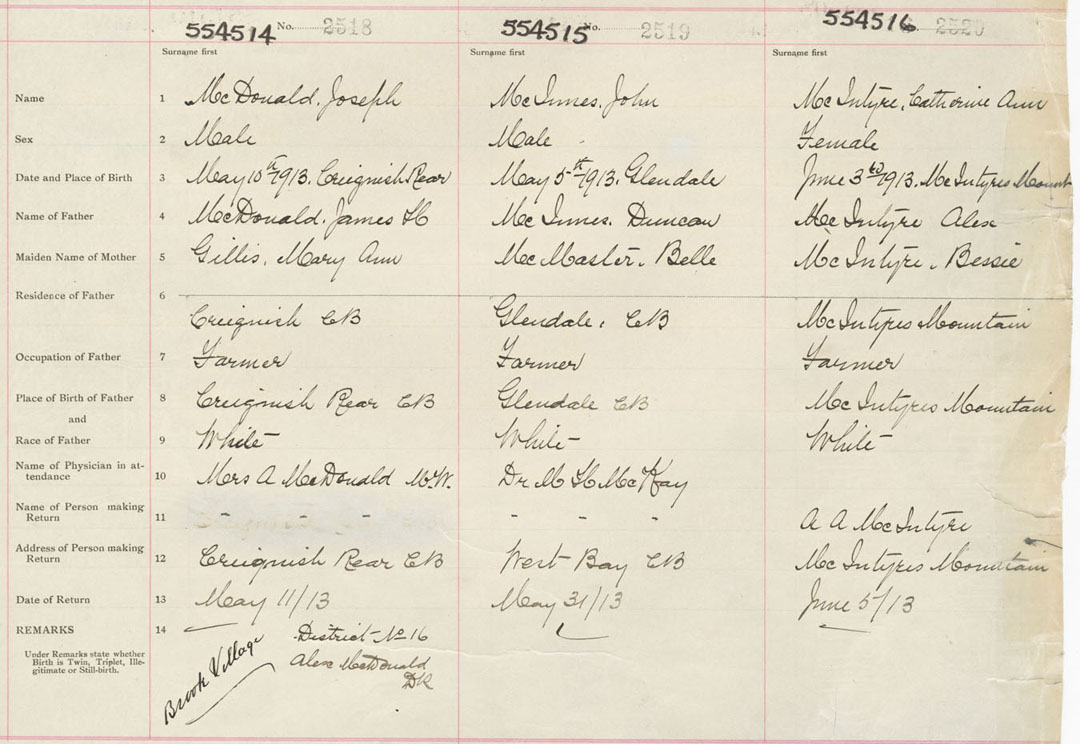 554514 No. 2518 554515 No. 2519 554516 2520
Surname first Surname first Surname first
Name 1 McDonald, Joseph McInnes, John McIntyre, Catherine Ann
Sex 2 Male Male Female
Date and Place of Birth 3 May 10th 1913. Creignish Rear May 5th 1913. Glendale June 3rd 1913. McIntyres Mount
Name of Father 4 McDonald. James H McInnes. Duncan McIntyre Alex
Maiden Name of Mother 5 Gillis, Mary Ann McMaster. Belle McIntyre. Bessie
Residence of Father 6 Creignish CB Glendale, CB McIntyres Mountain
Occupation of Father 7 Farmer Farmer Farmer
Place of Birth of Father 8 Creignish Rear CB Glendale CB McIntyres Mountain
and
Race of Father 9 White White White
Name of Physician in at-
tendance 10 Mrs A McDonald M.W. Dr M H McKay
Name of Person making
Return 11 - - - - - - A A McIntyre
Address of Person making
Return 12 Creignish Rear CB West Bay CB McIntyres Mountain
Date of Return 13 May 11/13 May 31/13 June 5/13
REMARKS 14 District No 16
Under Remarks state whether
Birth is Twin, Triplet, Ille-
gitimate or Still-birth.
Alex McDonald
DR
Brook Village